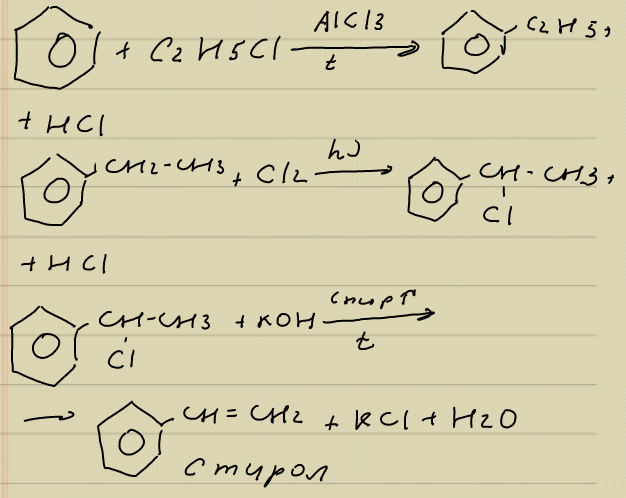 + C2H5Cl AlCl3 t C2H5+
+ HCl
CH2-CH3 + Cl2 hν CH-CH3+
Cl
+ HCl
CH-CH3 + KOH спирт t
Cl
CH=CH2 + KCl + H2O
Стирол